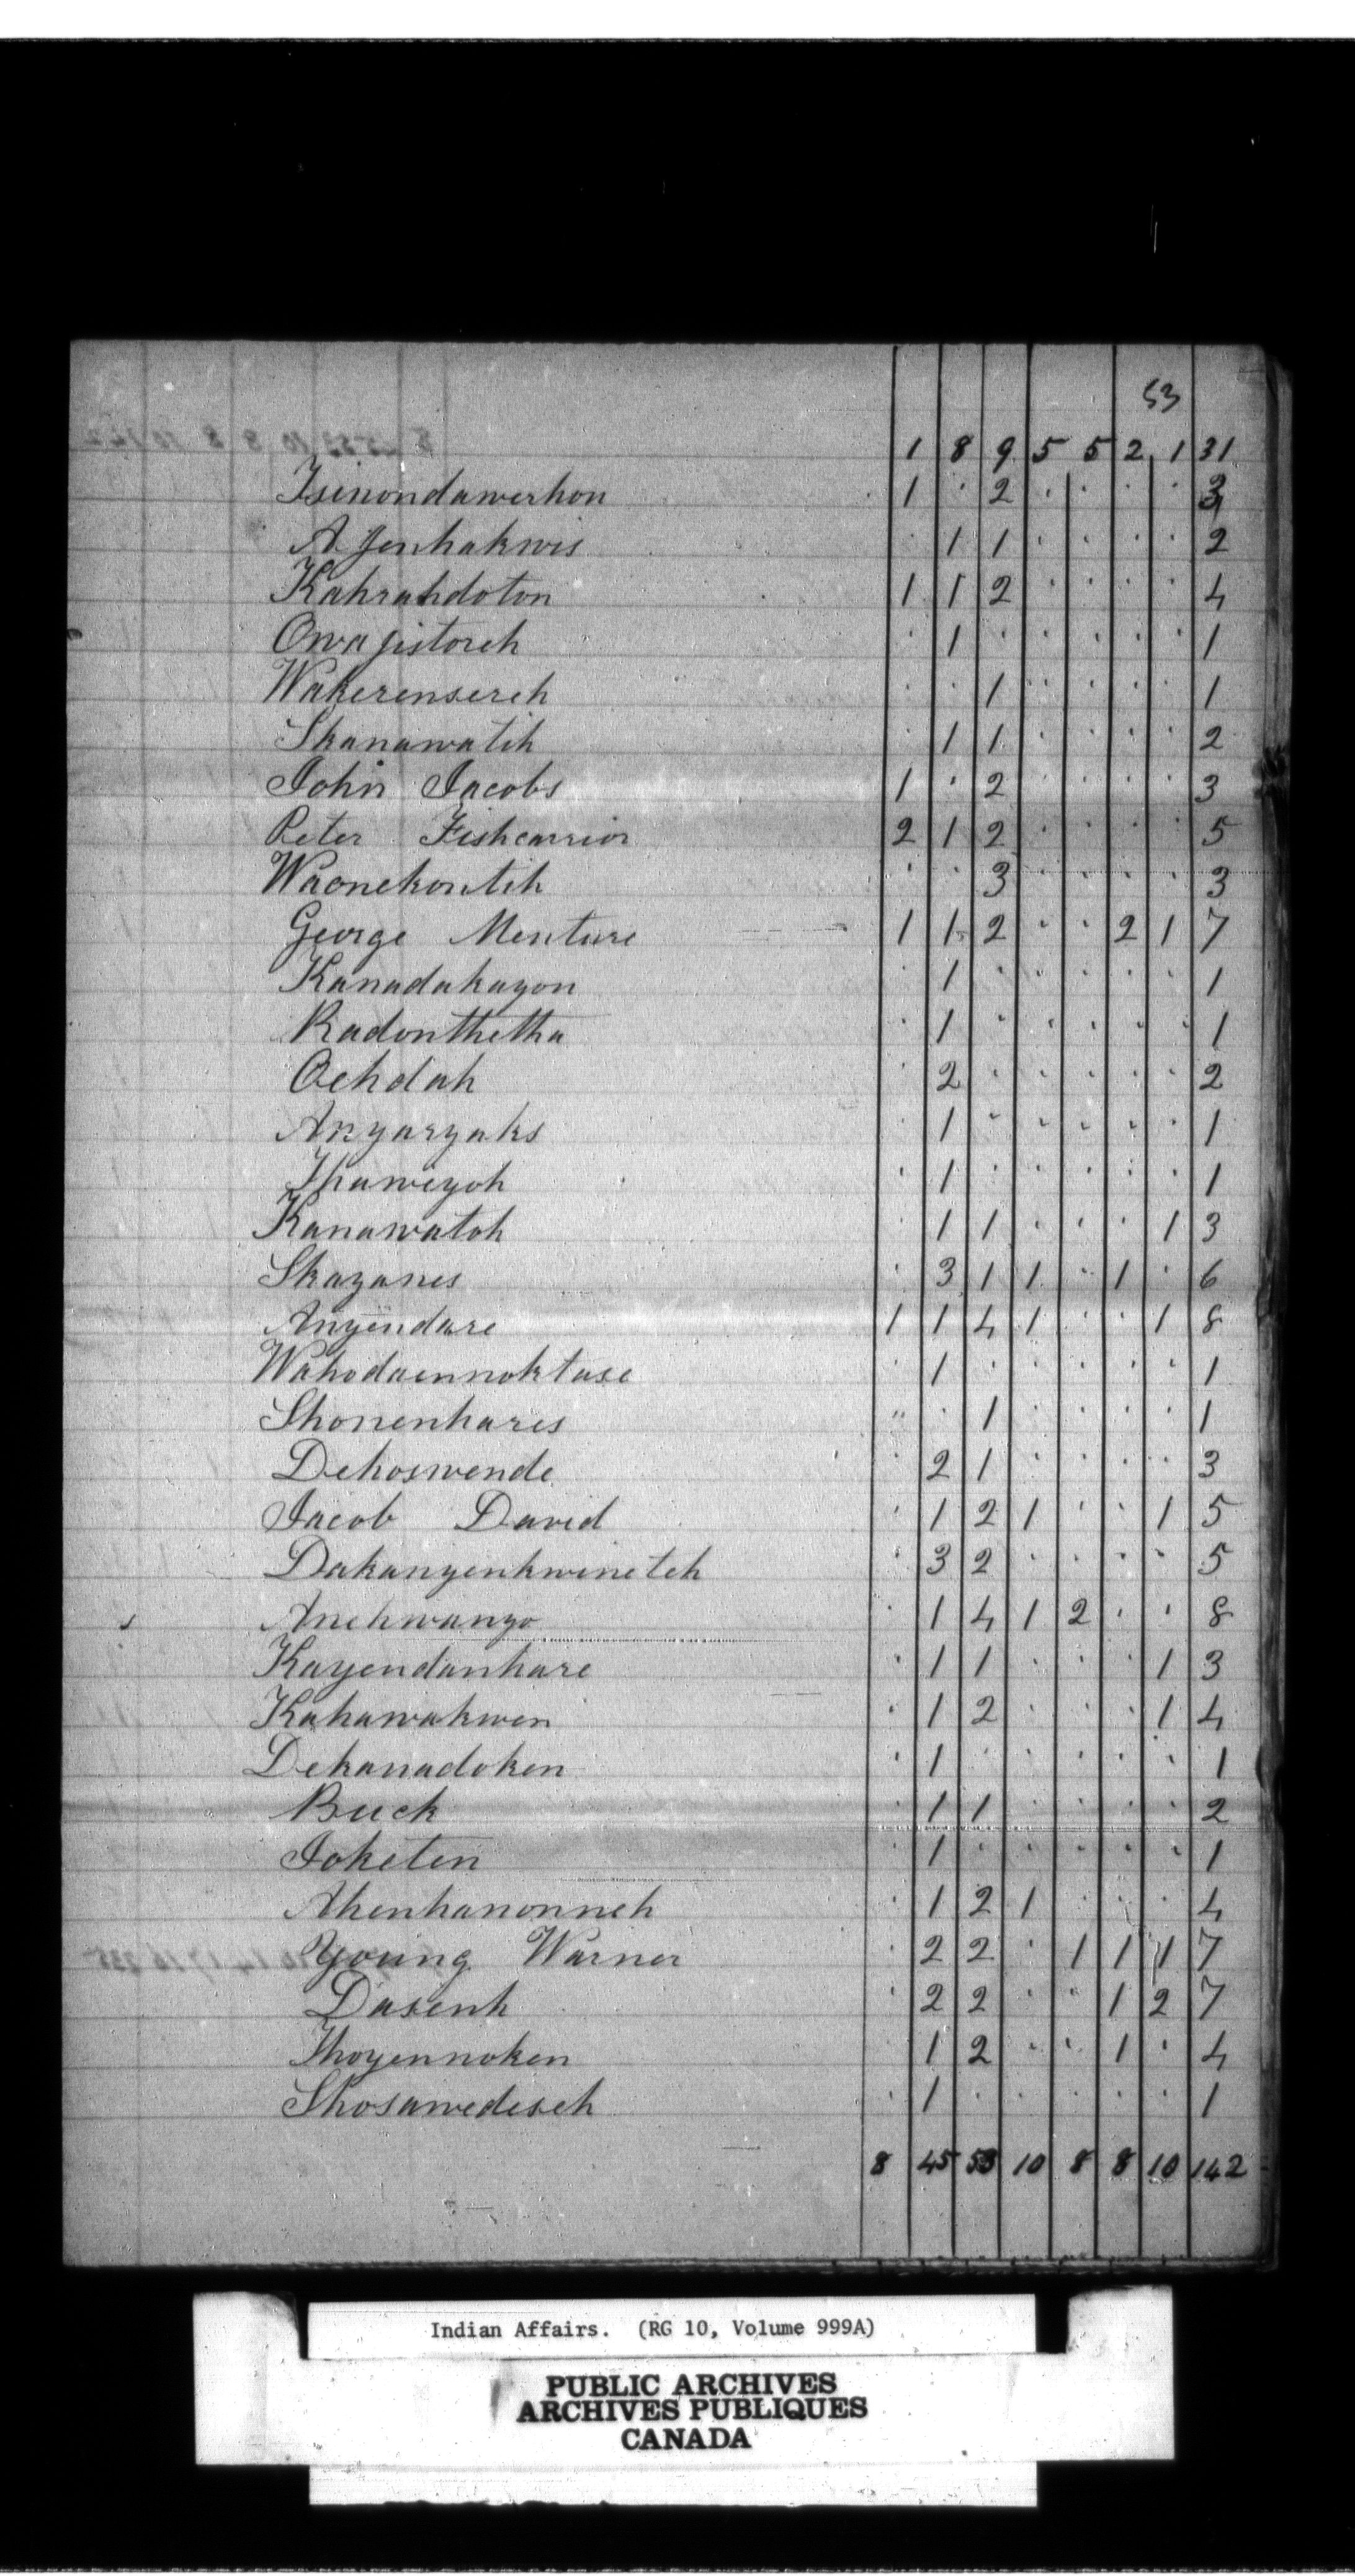 53
1 8 9 5 5 2 1 31
Tsinondawerhon 1 · 2 · · · · 3
A Jenhakwis · 1 1 · · · · 2
Kahrahdoton 1 1 2 · · · · 4
Owajistoreh · 1 · · · · · 1
Wakerensereh · · 1 · · · · 1
Skanawatih · 1 1 · · · · 2
John Jacobs 1 · 2 · · · · 3
Peter Fishcarrior 2 1 2 · · · · 5
Waonekontih · · 3 · · · · 3
George Menture 1 1 2 · · 2 1 7
Kanadakayon · 1 · · · · · 1
Radonthetha · 1 · · · · · 1
Oehdah · 2 · · · · · 2
Anyaryaks · 1 · · · · · 1
Thaweyoh · 1 · · · · · 1
Kanawatoh · 1 1 · · · 1 3
Skayanes · 3 1 1 · 1 · 6
Anyendare 1 1 4 1 · · 1 8
Wahodaennoktase · 1 · · · · · 1
Shonenhares " · 1 · · · · 1
Dehoswende · 2 1 · · · · 3
Jacob David · 1 2 1 · · 1 5
Dakanyenkwineteh · 3 2 · · · · 5
Anehwanyo · 1 4 1 2 · · 8
Kayendanhare · 1 1 · · · 1 3
Kahawakwen · 1 2 · · · 1 4
Dekanadoken · 1 · · · · · 1
Buck · 1 1 · · · · 2
Joketen · 1 · · · · · 1
Ahenhanonneh · 1 2 1 · · · 4
Young Warner · 2 2 · 1 1 1 7
Dasenh · 2 2 · · 1 2 7
Thoyennoken 1 2 · · 1 · 4
Shosawedeseh · 1 · · · · · 1
8 45 53 10 8 8 10 142
Indian Affairs. (RG 10, Volume 999A)
PUBLIC ARCHIVES
ARCHIVES PUBLIQUES
CANADA